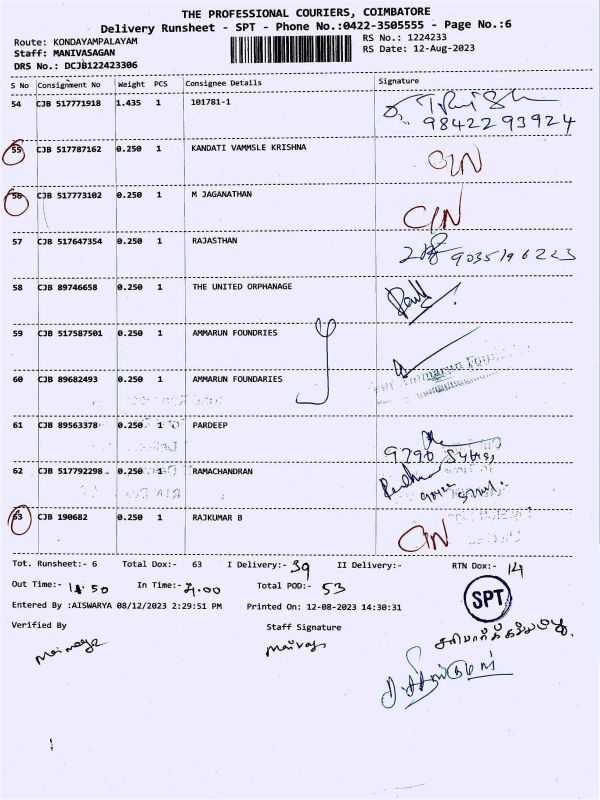 THE PROFESSIONAL COURIERS, COIMBATORE
Delivery Runsheet - SPT - Phone No.:0422-3505555 - Page No.:6
Route: KONDAYAMPALAYAM
Staff: MANIVASAGAN
DRS No.: DCJB122423306
RS No.: 1224233
RS Date: 12-Aug-2023
S No Consignment No Weight PCS Consignee Details Signature
54 CJB 517771918 1.435 1 101781-1
98422 93924
55 CJB 517787162 0.250 1 KANDATI VAMMSLE KRISHNA CIN
56 CJB 517773102 0.250 1 M JAGANATHAN CIN
57 CJB 517647354 0.250 1 RAJASTHAN
58 CJB 89746658 0.250 1 THE UNITED ORPHANAGE
59 CJB 517587501 0.250 1 AMMARUN FOUNDRIES
60 CJB 89682493 0.250 1 AMMARUN FOUNDARIES
61 CJB 89563378 0.250 1 PARDEEP
62 CJB 517792298 0.250 1 RAMACHANDRAN
63 CJB 190682 0.250 1 RAJKUMAR B CIN
Tot. Runsheet:- 6 Total Dox:- 63 I Delivery:- 39 II Delivery:- RTN Dox:- 14
Out Time:- 14.50 In Time:- 7.00 Total POD:- 53
SPT
Entered By :AISWARYA 08/12/2023 2:29:51 PM Printed On: 12-08-2023 14:30:31
Verified By Staff Signature